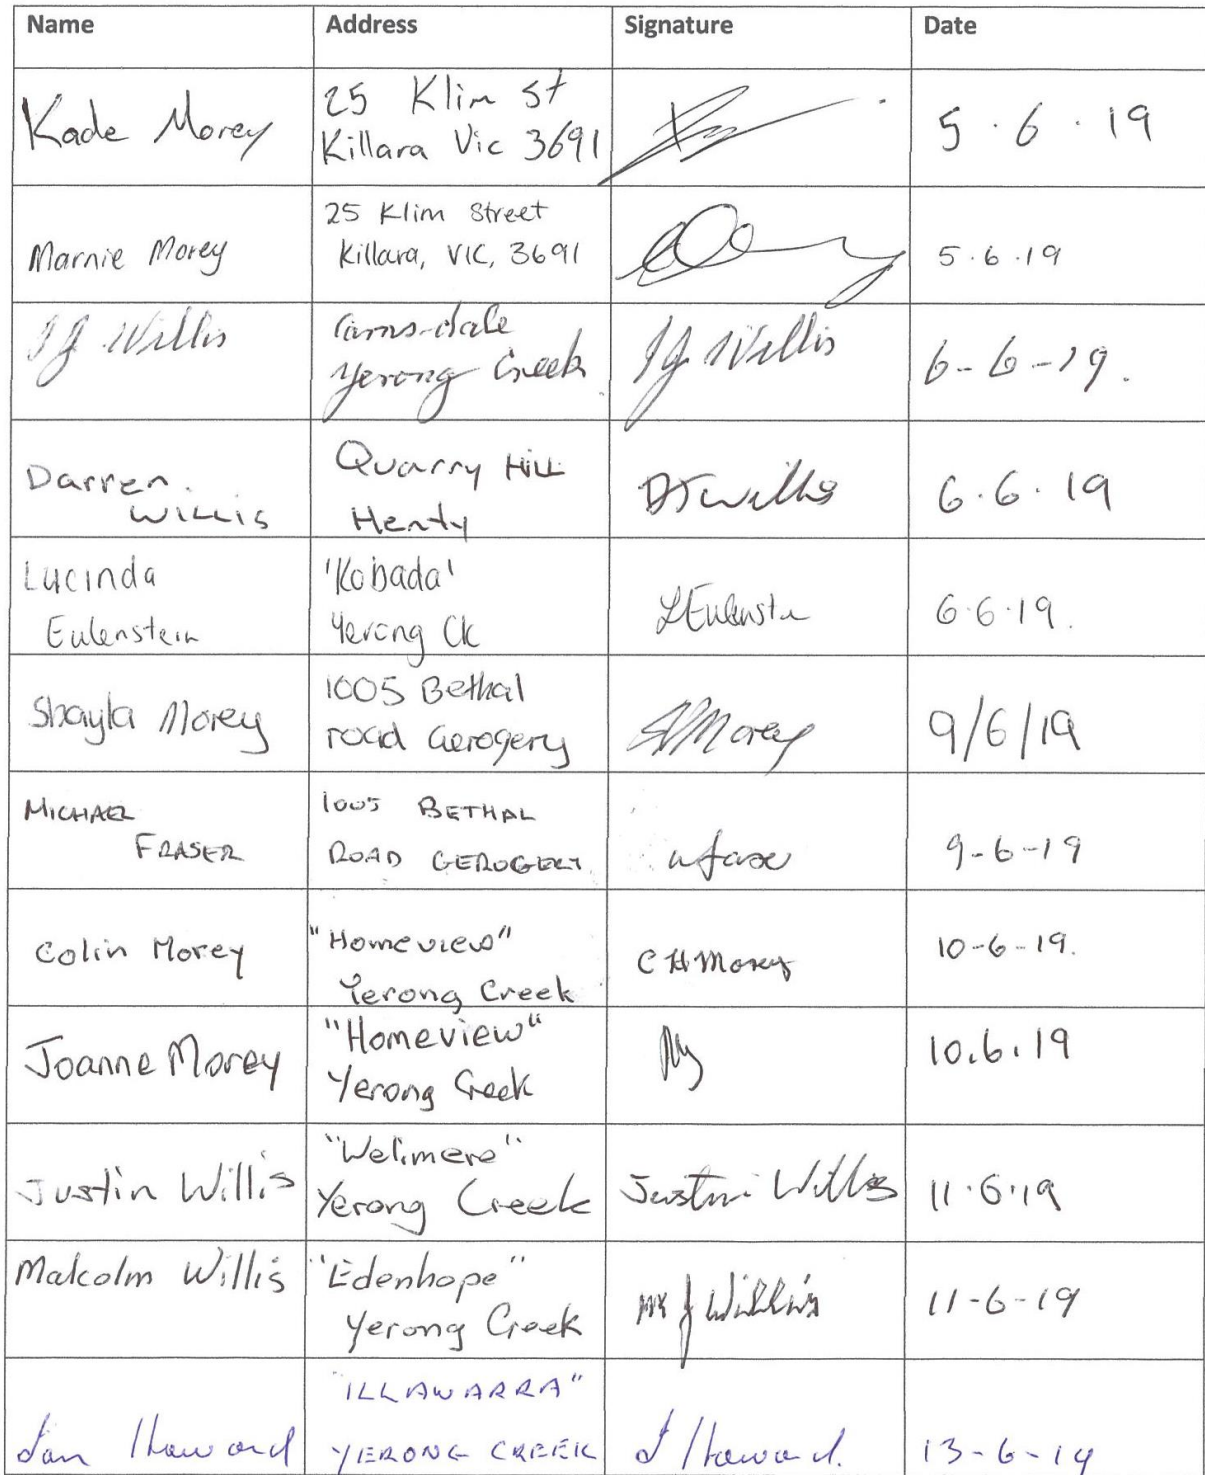 Name Address Signature Date
Kade Morey 25 Klim St
Killara Vic 3691 5.6.19
Marnie Morey 25 Klim Street
Killara, VIC, 3691 5.6.19
Willis Yerong Creek Willis 6-6-19.
Darren Quarry Hill
WILLIS Henty DJWillis 6.6.19
Lucinda 'Kobada'
Eulenstein Yerong Ck LEulenstn 6.6.19.
Shayla Morey 1005 Bethal
road Gerogery SMorey 9/6/19
MICHAEL 1005 BETHAL
FRASER ROAD GEROGERY 9-6-19
Colin Morey "Homeview"
Yerong Creek C H Morey 10-6-19.
Joanne Morey "Homeview"
Yerong Creek 10.6.19
Justin Willis "Welimere"
Yerong Creek Justin Willis 11.6.19
Malcolm Willis "Edenhope"
Yerong Creek J Willis 11-6-19
"ILLAWARRA"
Ian Howard YERONG CREEK I Howard. 13-6-19